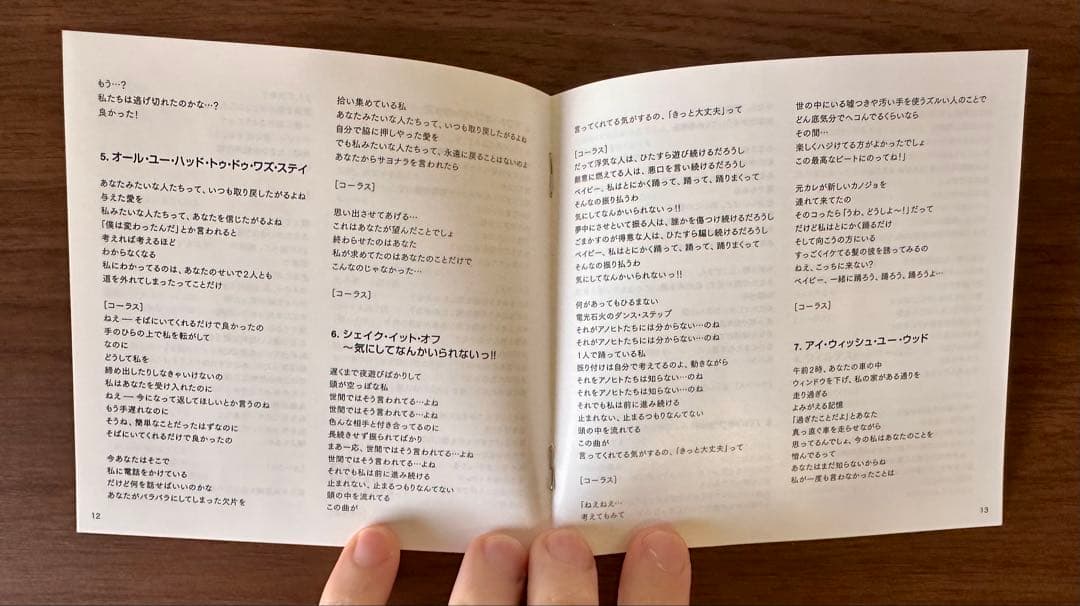 もう…?
私たちは逃げ切れたのかな…?
良かった!
5. オール・ユー・ハッド・トゥ・ドゥ・ワズ・ステイ
あなたみたいな人たちって、いつも取り戻したがるよね
与えた愛を
私みたいな人たちって、あなたを信じたがるよね
「僕は変わったんだ」とか言われると
考えれば考えるほど
わからなくなる
私にわかってるのは、あなたのせいで2人とも
道を外れてしまったってことだけ
[コーラス]
ねえ── そばにいてくれるだけで良かったの
手のひらの上で私を転がして
なのに
どうして私を
締め出したりしなきゃいけないの
私はあなたを受け入れたのに
ねえ── 今になって返してほしいとか言うのね
もう手遅れなのに
そうね、簡単なことだったはずなのに
そばにいてくれるだけで良かったの
今あなたはそこで
私に電話をかけている
だけど何を話せばいいのかな
あなたがバラバラにしてしまった欠片を
12
拾い集めている私
あなたみたいな人たちって、いつも取り戻したがるよね
自分で脇に押しやった愛を
でも私みたいな人たちって、永遠に戻ることはないのよ
あなたからサヨナラを言われたら
[コーラス]
思い出させてあげる…
これはあなたが望んだことでしょ
終わらせたのはあなた
私が求めてたのはあなたのことだけで
こんなのじゃなかった…
[コーラス]
6. シェイク・イット・オフ
~気にしてなんかいられないっ!!
遅くまで夜遊びばかりして
頭が空っぽな私
世間ではそう言われてる…よね
世間ではそう言われてる…よね
色んな相手と付き合ってるのに
長続きせず振られてばかり
まあ一応、世間ではそう言われてる…よね
世間ではそう言われてる…よね
それでも私は前に進み続ける
止まれない、止まるつもりなんてない
頭の中を流れてる
この曲が
言ってくれてる気がするの、「きっと大丈夫」って
[コーラス]
だって浮気な人は、ひたすら遊び続けるだろうし
敵意に燃えてる人は、悪口を言い続けるだろうし
ベイビー、私はとにかく踊って、踊って、踊りまくって
そんなの振り払うわ
気にしてなんかいられないっ!!
夢中にさせといて振る人は、誰かを傷つけ続けるだろうし
ごまかすのが得意な人は、ひたすら騙し続けるだろうし
ベイビー、私はとにかく踊って、踊って、踊りまくって
そんなの振り払うわ
気にしてなんかいられないっ!!
何があってもひるまない
電光石火のダンス・ステップ
それがアノヒトたちには分からない…のね
それがアノヒトたちには分からない…のね
1人で踊っている私
振り付けは自分で考えてるのよ、動きながら
それをアノヒトたちは知らない…のね
それをアノヒトたちは知らない…のね
それでも私は前に進み続ける
止まれない、止まるつもりなんてない
頭の中を流れてる
この曲が
言ってくれてる気がするの、「きっと大丈夫」って
[コーラス]
「ねえねえ…
考えてもみて
世の中にいる嘘つきや汚い手を使うズルい人のことで
どん底気分でヘコんでるくらいなら
その間…
楽しくハジけてる方がよかったでしょ
この最高なビートにのってね!」
元カレが新しいカノジョを
連れて来てたの
そのコったら「うわ、どうしよ~!」だって
だけど私はとにかく踊るだけ
そして向こうの方にいる
すっごくイケてる髪の彼を誘ってみるの
ねえ、こっちに来ない?
ベイビー、一緒に踊ろう、踊ろう、踊ろうよ…
[コーラス]
7. アイ・ウィッシュ・ユー・ウッド
午前2時、あなたの車の中
ウィンドウを下げ、私の家がある通りを
走り過ぎる
よみがえる記憶
「過ぎたことだよ」とあなた
真っ直ぐ車を走らせながら
思ってるんでしょ、今の私はあなたのことを
憎んでるって
あなたはまだ知らないからね
私が一度も言わなかったことは
13